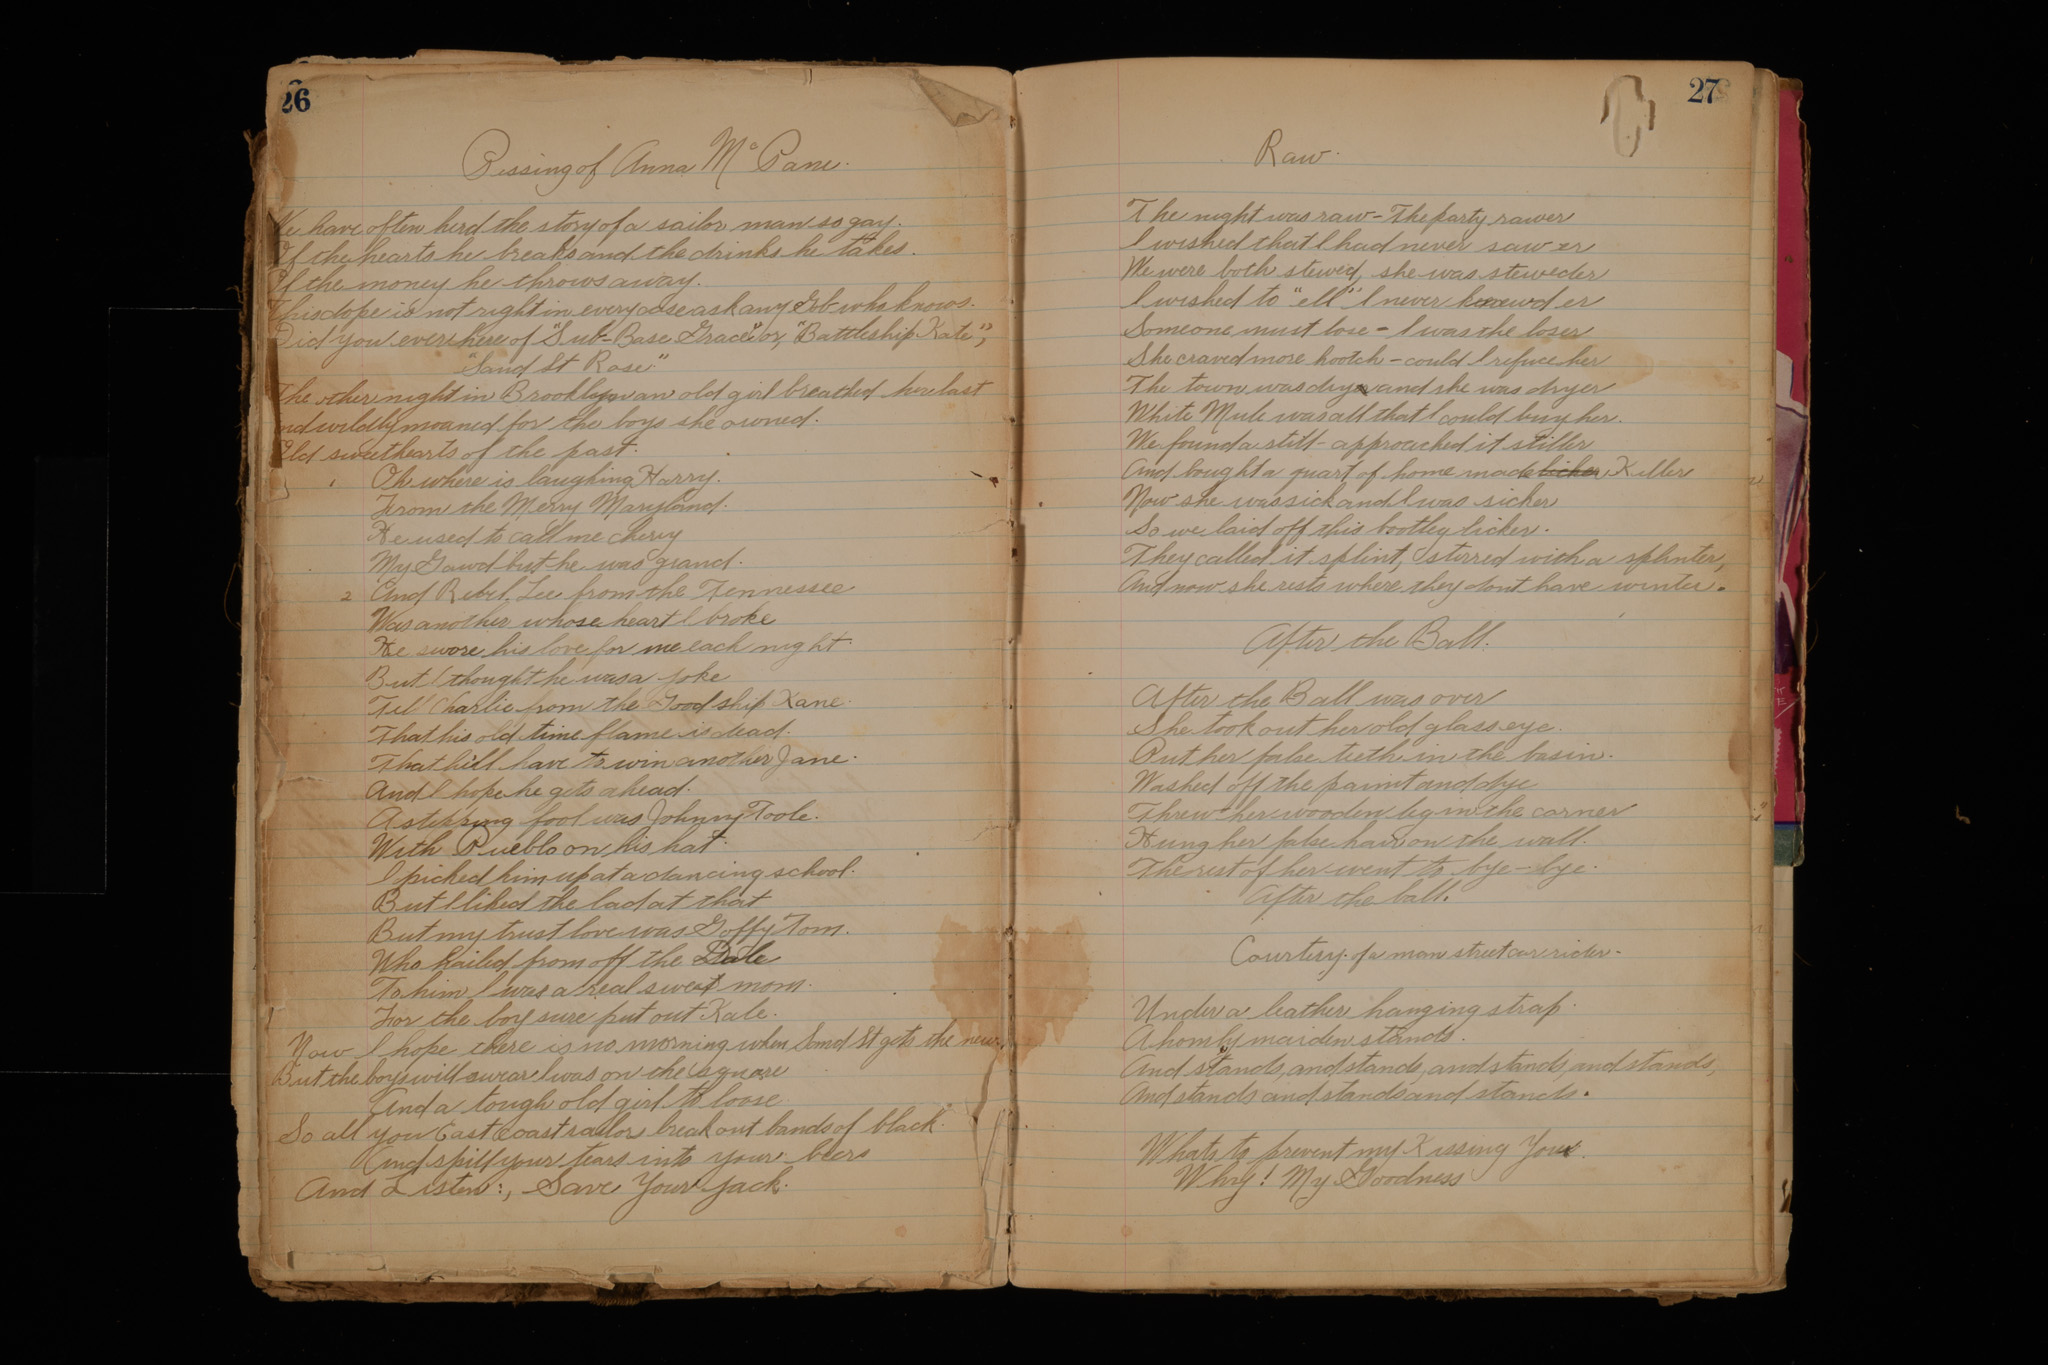 26
Passing of Anna Mc Pane.
We have often herd the story of a sailor man so gay.
Of the hearts he breaks and the drinks he takes.
Of the money he throws away.
This dope is not right in every case ask any Gob who knows.
Did you ever here of "Sub-Base Grace" or, "Battleship Kate",
"Sand St Rose."
The other night in Brooklyn an old girl breathed her last
And wildly moaned for the boys she owned.
Old sweethearts of the past.
1 Oh where is laughing Harry.
From the Merry Maryland.
He used to call me cherry
My Gawd but he was grand.
2 And Rebel Lee from the Tennessee
Was another whose heart I broke
He swore his love for me each night.
But I thought he was a joke
Tell Charlie from the Good ship Kane.
That his old time flame is dead.
That he'll have to win another Jane.
And I hope he gets ahead.
A steering fool was Johnny Toole.
With Pueblo on his hat.
I picked him up at a dancing school.
But I liked the lad at that
But my trust love was Goffy Tom.
Who hailed from off the Dale
To him I was a real sweet mom.
For the boy sure put out Kale.
Now I hope there is no morning when Sand St gets the news.
But the boys will swear I was on the square
And a tough old girl to loose.
So all you East Coast sailors break out bands of black.
And spill your tears into your beers
And Listen:, Save Your Jack.
27
Raw.
The night was raw - The party rawer
I wished that I had never saw er
We were both stewed, she was steweder
I wished to "ell" I never knewd er
Someone must lose - I was the loser
She craved more hootch - could I refuce her
The town was dry and she was dryer
White Mule was all that I could buy her.
We found a still - approached it stiller
And bought a quart of home made licker Killer
Now she was sick and I was sicker
So we laid off this bootleg licker.
They called it splint, I stirred with a splinter,
And now she rests where they dont have winter.
After the Ball.
After the Ball was over
She took out her old glass eye.
Put her false teeth in the basin.
Washed off the paint and dye
Threw her wooden leg in the corner
Hung her false hair on the wall.
The rest of her went to bye-bye.
After the ball.
Courtesy. of a man street car rider.
Under a leather hanging strap.
A homly maiden stands.
And stands, and stands, and stands, and stands,
And stands and stands and stands.
Whats to prevent my Kissing You.
Why! My Goodness